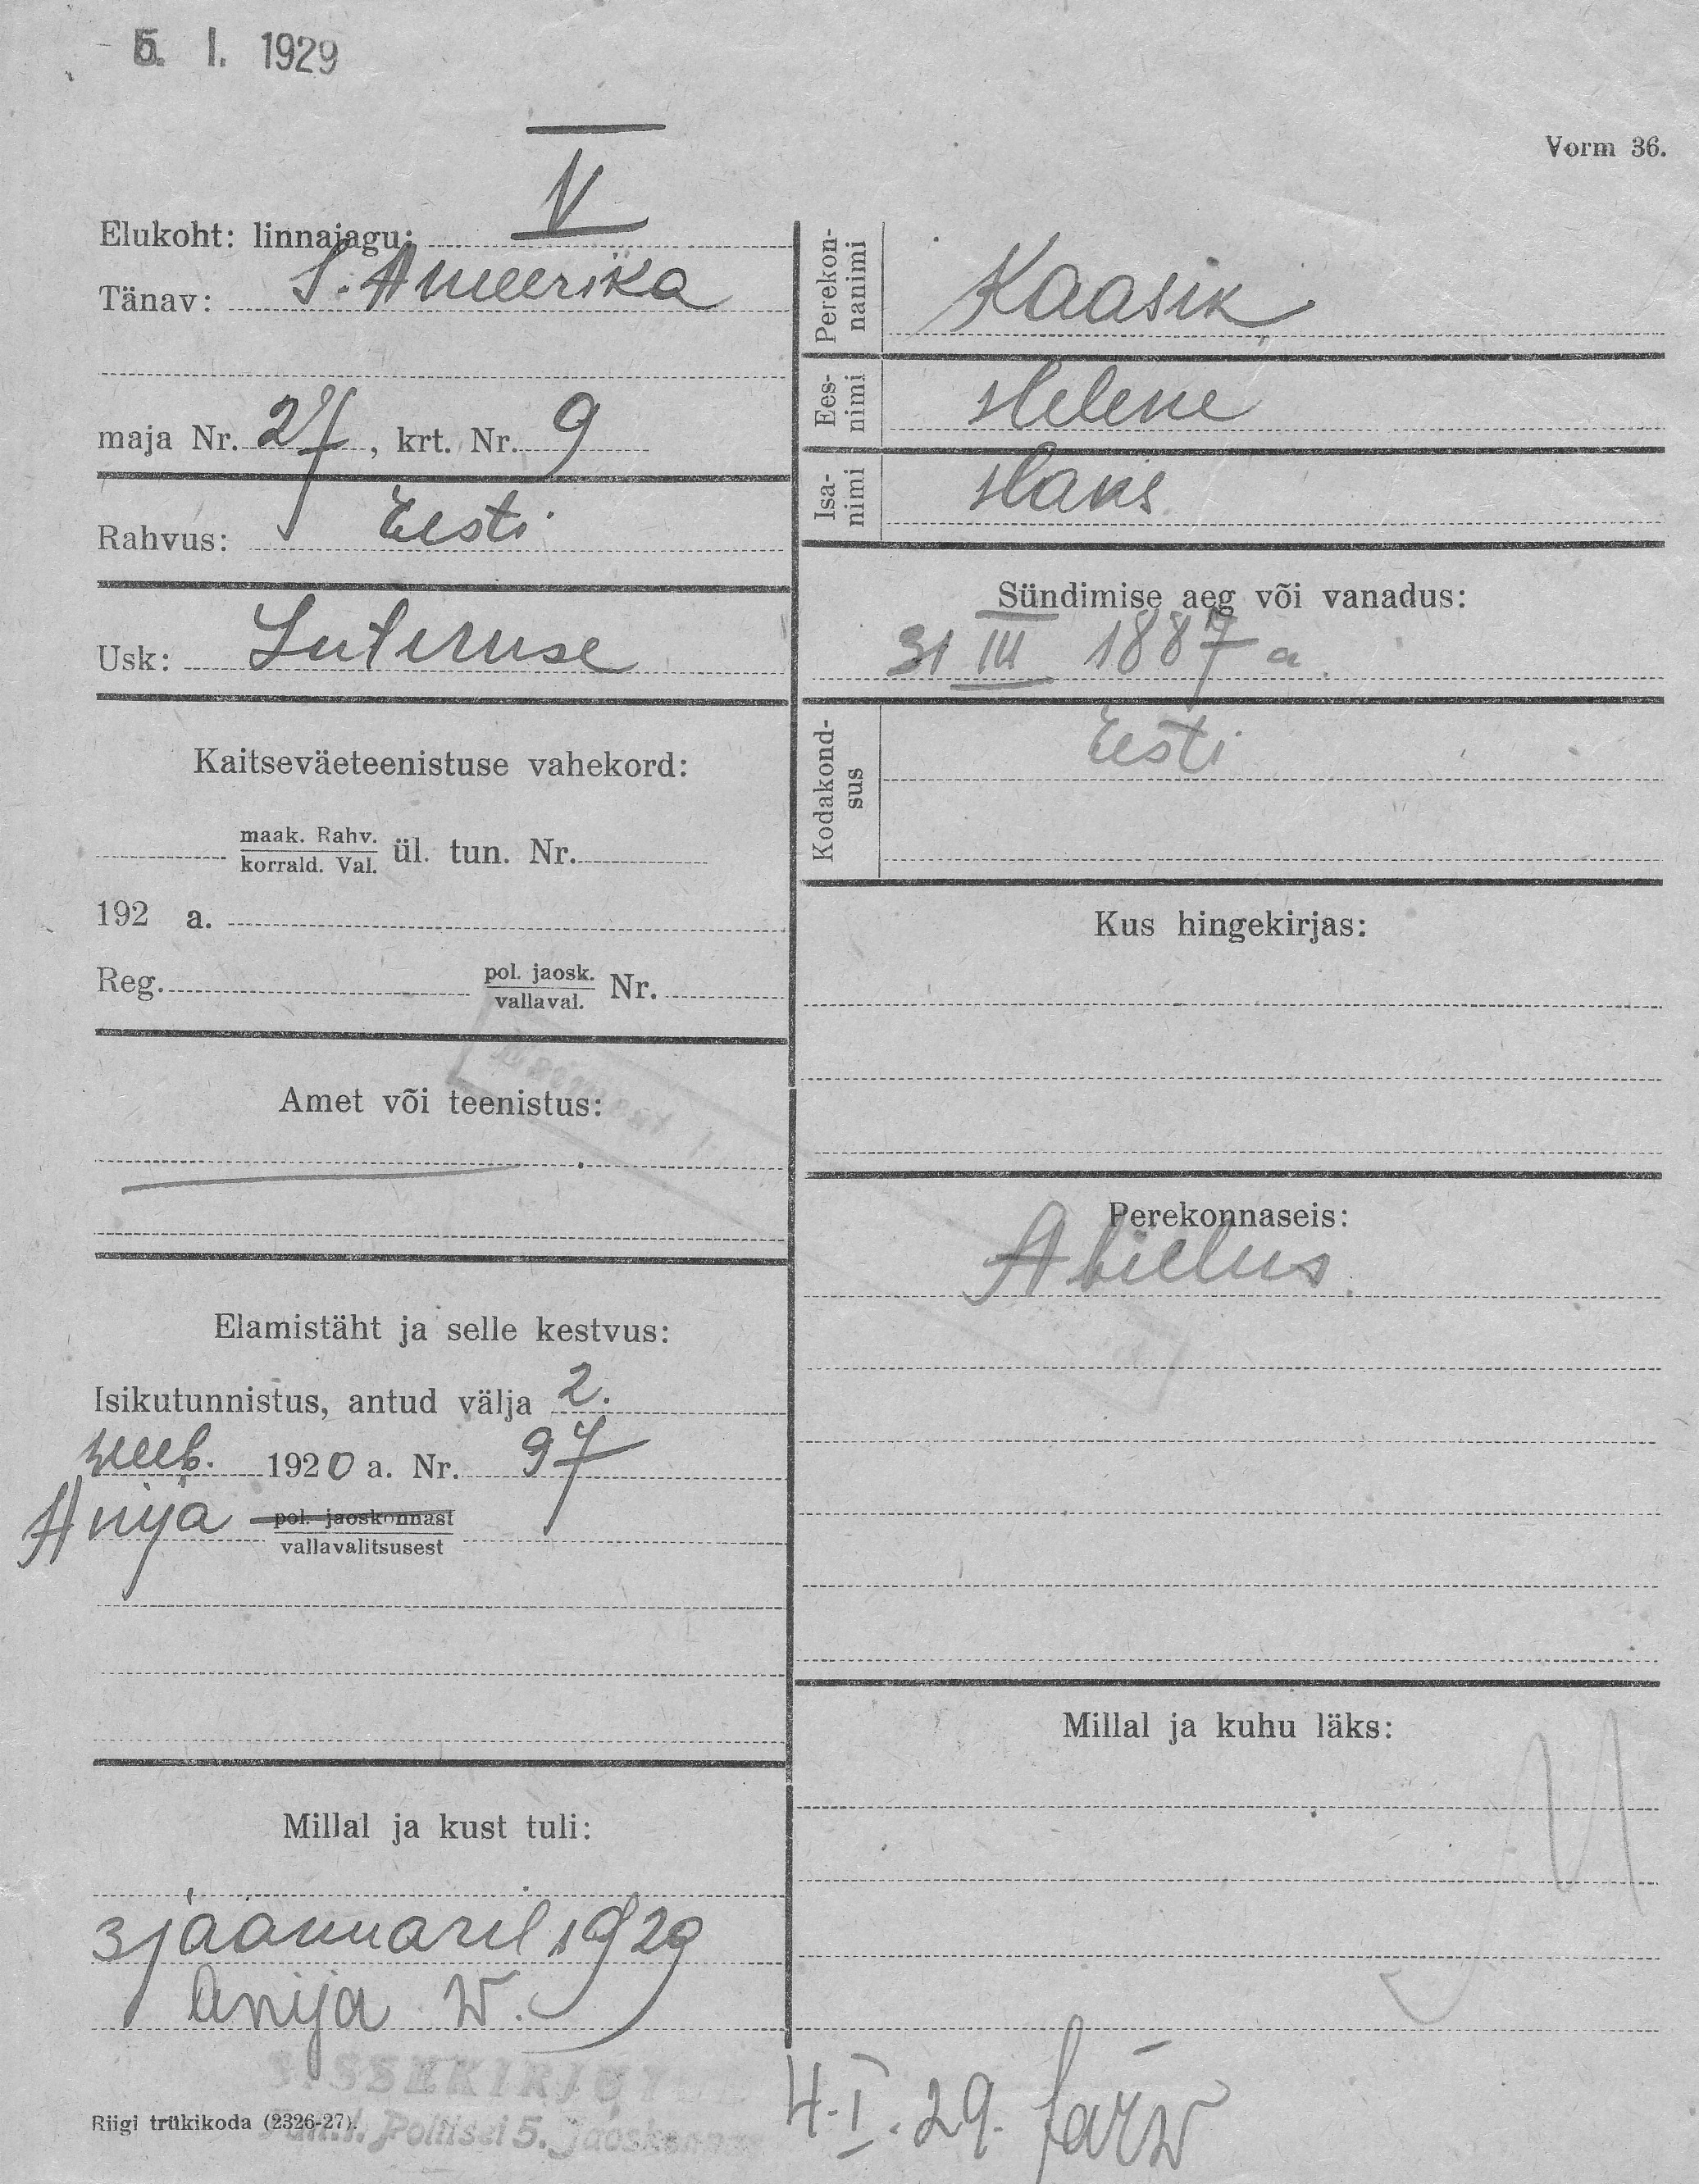 5. I. 1929
Vorm 36.
Elukoht: linnajagu: V
Tänav: S. Ameerika
maja Nr. 27, krt. Nr. 9
Rahvus: Eesti
Usk: Luteruse
Kaitseväeteenistuse vahekord:
maak. Rahv.
korrald. Val. ül. tun. Nr.
192 a.
Reg. pol. jaosk.
vallaval. Nr.
Amet või teenistus:
Elamistäht ja selle kestvus:
Isikutunnistus, antud välja 2.
weeb. 1920 a. Nr. 97
Anija pol. jaoskonnast
vallavalitsusest
Millal ja kust tuli:
3 jaanuaril 1929
Anija W.
SISSEKIRJUT
Politsei 5. jaoskonnas
Riigi trükikoda (2326-27).
Perekon-
nanimi
Kaasik
Ees-
nimi
Helene
Isa-
nimi
Hans
Sündimise aeg või vanadus:
31 III 1887 a.
Kodakond-
sus
Eesti
Kus hingekirjas:
Perekonnaseis:
Abielus
Millal ja kuhu läks:
4. I. 29.